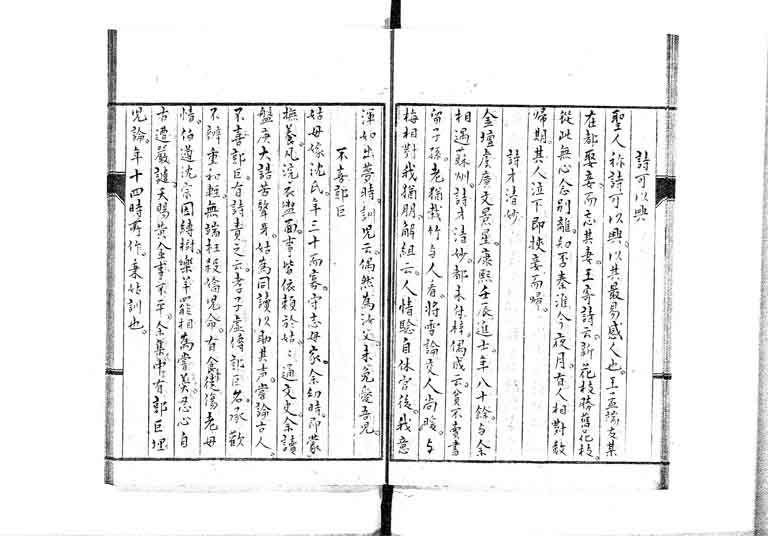 詩可以興
聖人稱詩可以興。以其最易感人也。王孟端友某
在都娶妾。而忘其妻。王寄詩云。新花枝勝舊花枝。
從此無心念別離。知否秦淮今夜月。有人相對數
歸期。其人泣下。即挾妾而歸。
詩才清妙
金壇虞廣文景星。康熙壬辰進士。年八十餘。與余
相遇蘇州。詩才清妙。都未付梓。偶成云。貧不賣書
留子孫。老猶栽竹與人看。將雪論交人尚暖。與
梅相對我猶朋。解組云。人情驗自休官後。我意
渾如出夢時。訓兒云。偶然為汝父。未免愛吾兒。
不喜郭巨
姑母嫁沈氏。年三十而寡。守志母家。余幼時。即蒙
撫養。凡浣衣盥面。事皆依賴於姑。姑通文史。余讀
盤庚大誥苦聱牙。姑為同讀以助其聲。嘗論古人。
不喜郭巨。有詩責之云。孝子虛傳郭巨名。承歡
不辨重和輕。無端枉殺嬌兒命。有食徒傷老母
情。伯道沈宗因縛樹。樂羊罷相為嘗羹。忍心自
古遭嚴譴。天賜黃金事不平。余集中有郭巨埋
兒論。年十四時所作。秉姑訓也。